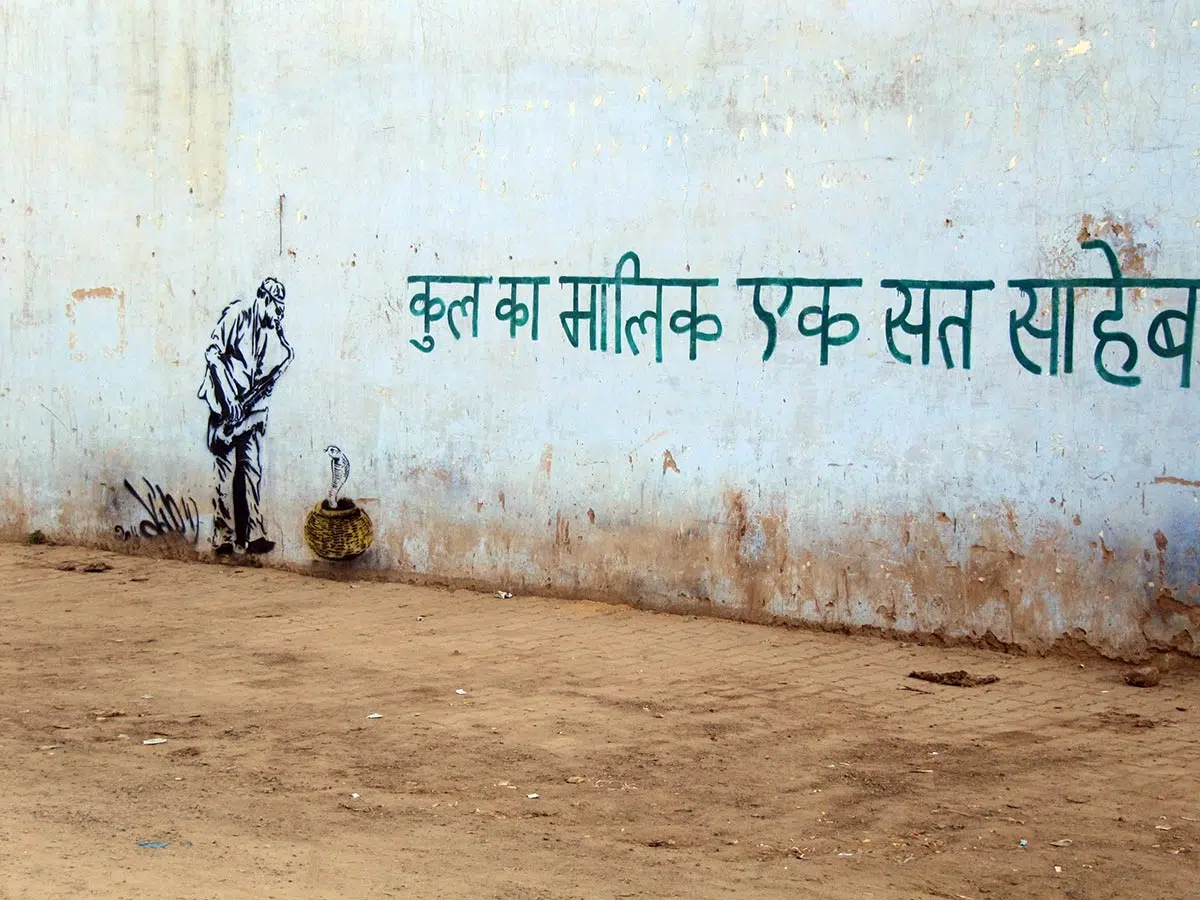 कुल का मालिक एक सत साहेब